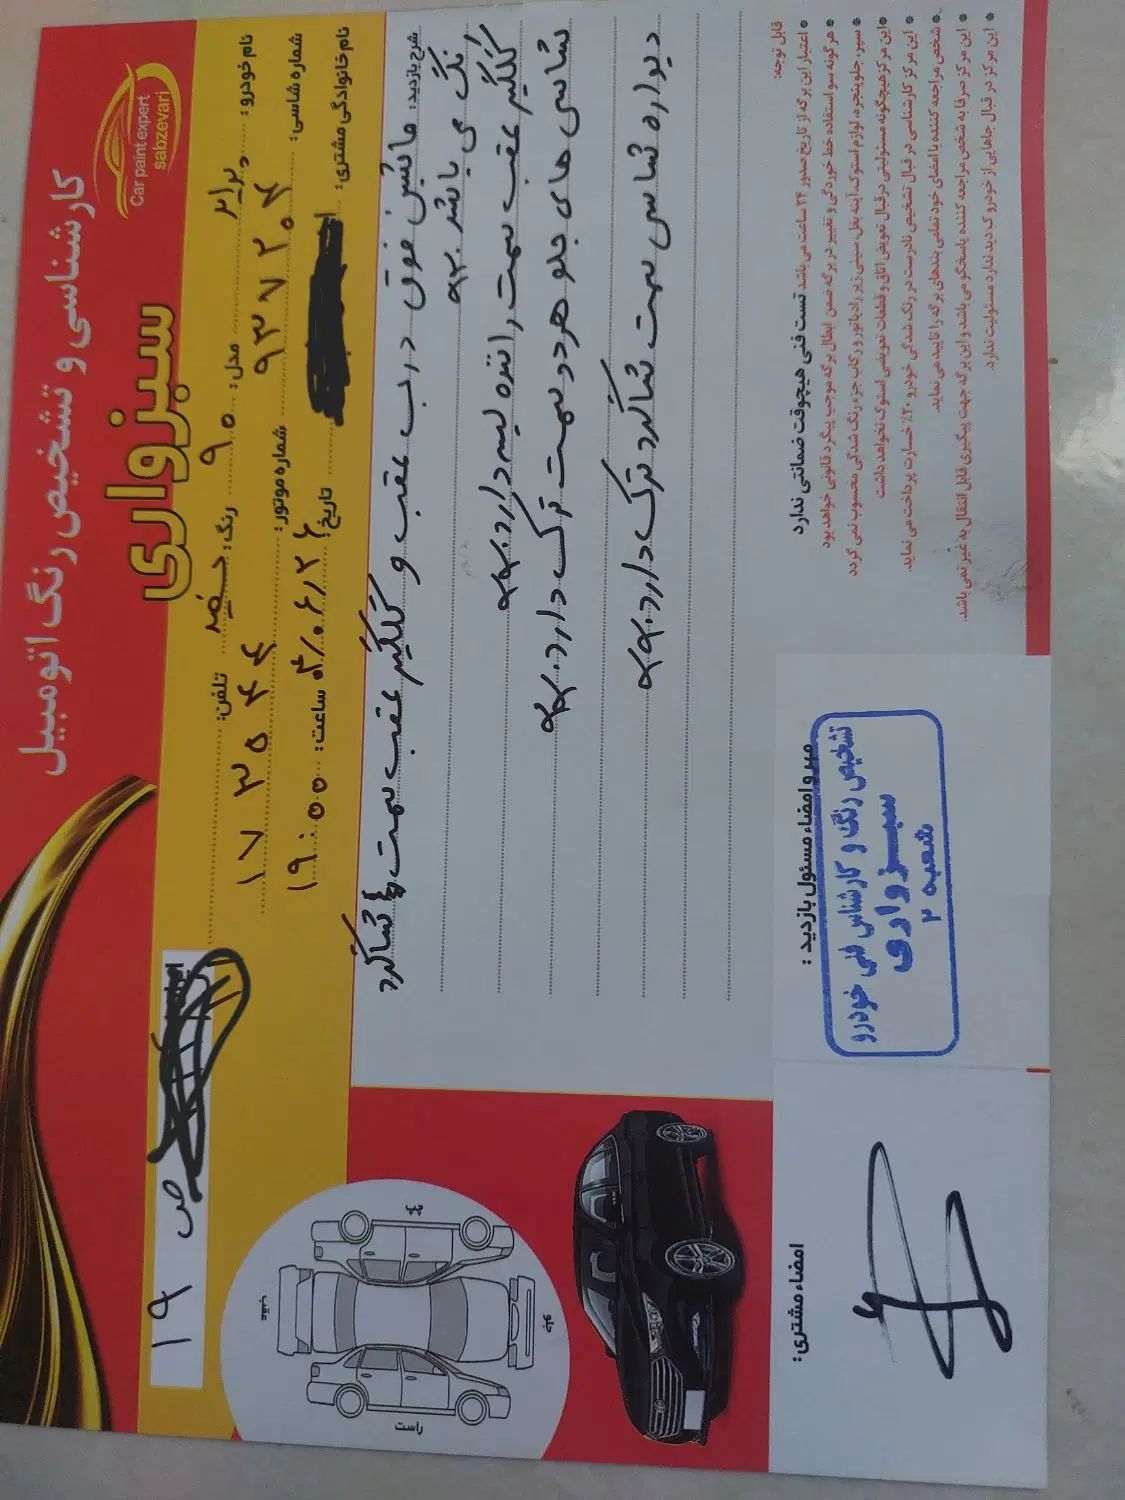 کارشناسی و تشخیص رنگ اتومبیل
سبزواری
Car paint expert
sabzevari
نام خودرو: پراید مدل: ۹۰ رنگ: سفید تلفن:
شماره شاسی: ۹۳۷۲۰۴ شماره موتور: ۱۷۳۵۴۴
نام خانوادگی مشتری: تاریخ: ساعت: ۱۹:۰۰
۱۹ ص
شرح بازدید: ماشین فوق درب عقب و گلگیر عقب سمت شاگرد
رنگ می باشد
گلگیر عقب سمت راننده لیسه دارد
شاسی های جلو هر دو سمت ترک دارد
دیواره شاسی سمت شاگرد ترک دارد
قابل توجه:
* اعتبار این برگه از تاریخ صدور ۲۴ ساعت می باشد تست فنی هیچوقت ضمانتی ندارد
* هرگونه سو استفاده خط خوردگی و تغییر در برگه ضمن ابطال برگه موجب پیگرد قانونی خواهد بود
* سپر، جلو پنجره، لوازم استوک، آینه بغل، سینی زیر رادیاتور و رکاب جزء رنگ شدگی محسوب نمی گردد
* این مرکز هیچگونه مسئولیتی در قبال تعویض اتاق و قطعات تعویضی استوک نخواهد داشت
* این مرکز کارشناسی در قبال تشخیص نادرست در رنگ شدگی خودرو ۲۰٪ خسارت پرداخت می نماید.
* شخص مراجعه کننده با امضای خود تمامی بندهای برگه را تایید می نماید.
* این مرکز صرفا به شخص مراجعه کننده پاسخگو می باشد و این برگه جهت پیگیری قابل انتقال به غیر نمی باشد.
* این مرکز در قبال جاهایی از خودرو که دید ندارد مسئولیت ندارد.
مهر و امضاء مسئول بازدید:
تشخیص رنگ و کارشناس فنی خودرو
سبزواری
شعبه ۲
امضاء مشتری:
چپ
جلو
راست